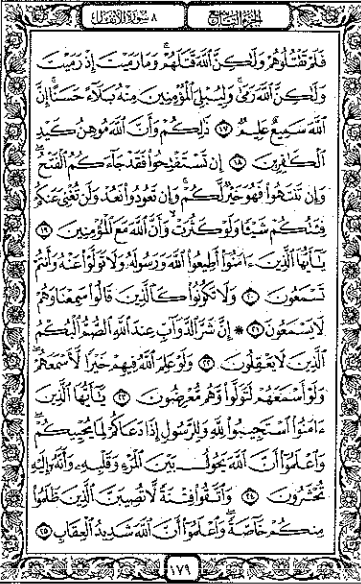 الجزء التاسع ٨ سورة الأنفال
فَلَمْ تَقْتُلُوهُمْ وَلَٰكِنَّ ٱللَّهَ قَتَلَهُمْ ۚ وَمَا رَمَيْتَ إِذْ رَمَيْتَ
وَلَٰكِنَّ ٱللَّهَ رَمَىٰ ۚ وَلِيُبْلِىَ ٱلْمُؤْمِنِينَ مِنْهُ بَلَآءً حَسَنًا ۚ إِنَّ
ٱللَّهَ سَمِيعٌ عَلِيمٌ ١٧ ذَٰلِكُمْ وَأَنَّ ٱللَّهَ مُوهِنُ كَيْدِ
ٱلْكَٰفِرِينَ ١٨ إِن تَسْتَفْتِحُوا۟ فَقَدْ جَآءَكُمُ ٱلْفَتْحُ ۖ
وَإِن تَنتَهُوا۟ فَهُوَ خَيْرٌ لَّكُمْ ۖ وَإِن تَعُودُوا۟ نَعُدْ وَلَن تُغْنِىَ عَنكُمْ
فِئَتُكُمْ شَيْـًٔا وَلَوْ كَثُرَتْ وَأَنَّ ٱللَّهَ مَعَ ٱلْمُؤْمِنِينَ ١٩
يَٰٓأَيُّهَا ٱلَّذِينَ ءَامَنُوٓا۟ أَطِيعُوا۟ ٱللَّهَ وَرَسُولَهُۥ وَلَا تَوَلَّوْا۟ عَنْهُ وَأَنتُمْ
تَسْمَعُونَ ٢٠ وَلَا تَكُونُوا۟ كَٱلَّذِينَ قَالُوا۟ سَمِعْنَا وَهُمْ
لَا يَسْمَعُونَ ٢١ ۞ إِنَّ شَرَّ ٱلدَّوَآبِّ عِندَ ٱللَّهِ ٱلصُّمُّ ٱلْبُكْمُ
ٱلَّذِينَ لَا يَعْقِلُونَ ٢٢ وَلَوْ عَلِمَ ٱللَّهُ فِيهِمْ خَيْرًا لَّأَسْمَعَهُمْ ۖ
وَلَوْ أَسْمَعَهُمْ لَتَوَلَّوا۟ وَّهُم مُّعْرِضُونَ ٢٣ يَٰٓأَيُّهَا ٱلَّذِينَ
ءَامَنُوا۟ ٱسْتَجِيبُوا۟ لِلَّهِ وَلِلرَّسُولِ إِذَا دَعَاكُمْ لِمَا يُحْيِيكُمْ ۖ
وَٱعْلَمُوٓا۟ أَنَّ ٱللَّهَ يَحُولُ بَيْنَ ٱلْمَرْءِ وَقَلْبِهِۦ وَأَنَّهُۥٓ إِلَيْهِ
تُحْشَرُونَ ٢٤ وَٱتَّقُوا۟ فِتْنَةً لَّا تُصِيبَنَّ ٱلَّذِينَ ظَلَمُوا۟
مِنكُمْ خَآصَّةً ۖ وَٱعْلَمُوٓا۟ أَنَّ ٱللَّهَ شَدِيدُ ٱلْعِقَابِ ٢٥
١٧٩